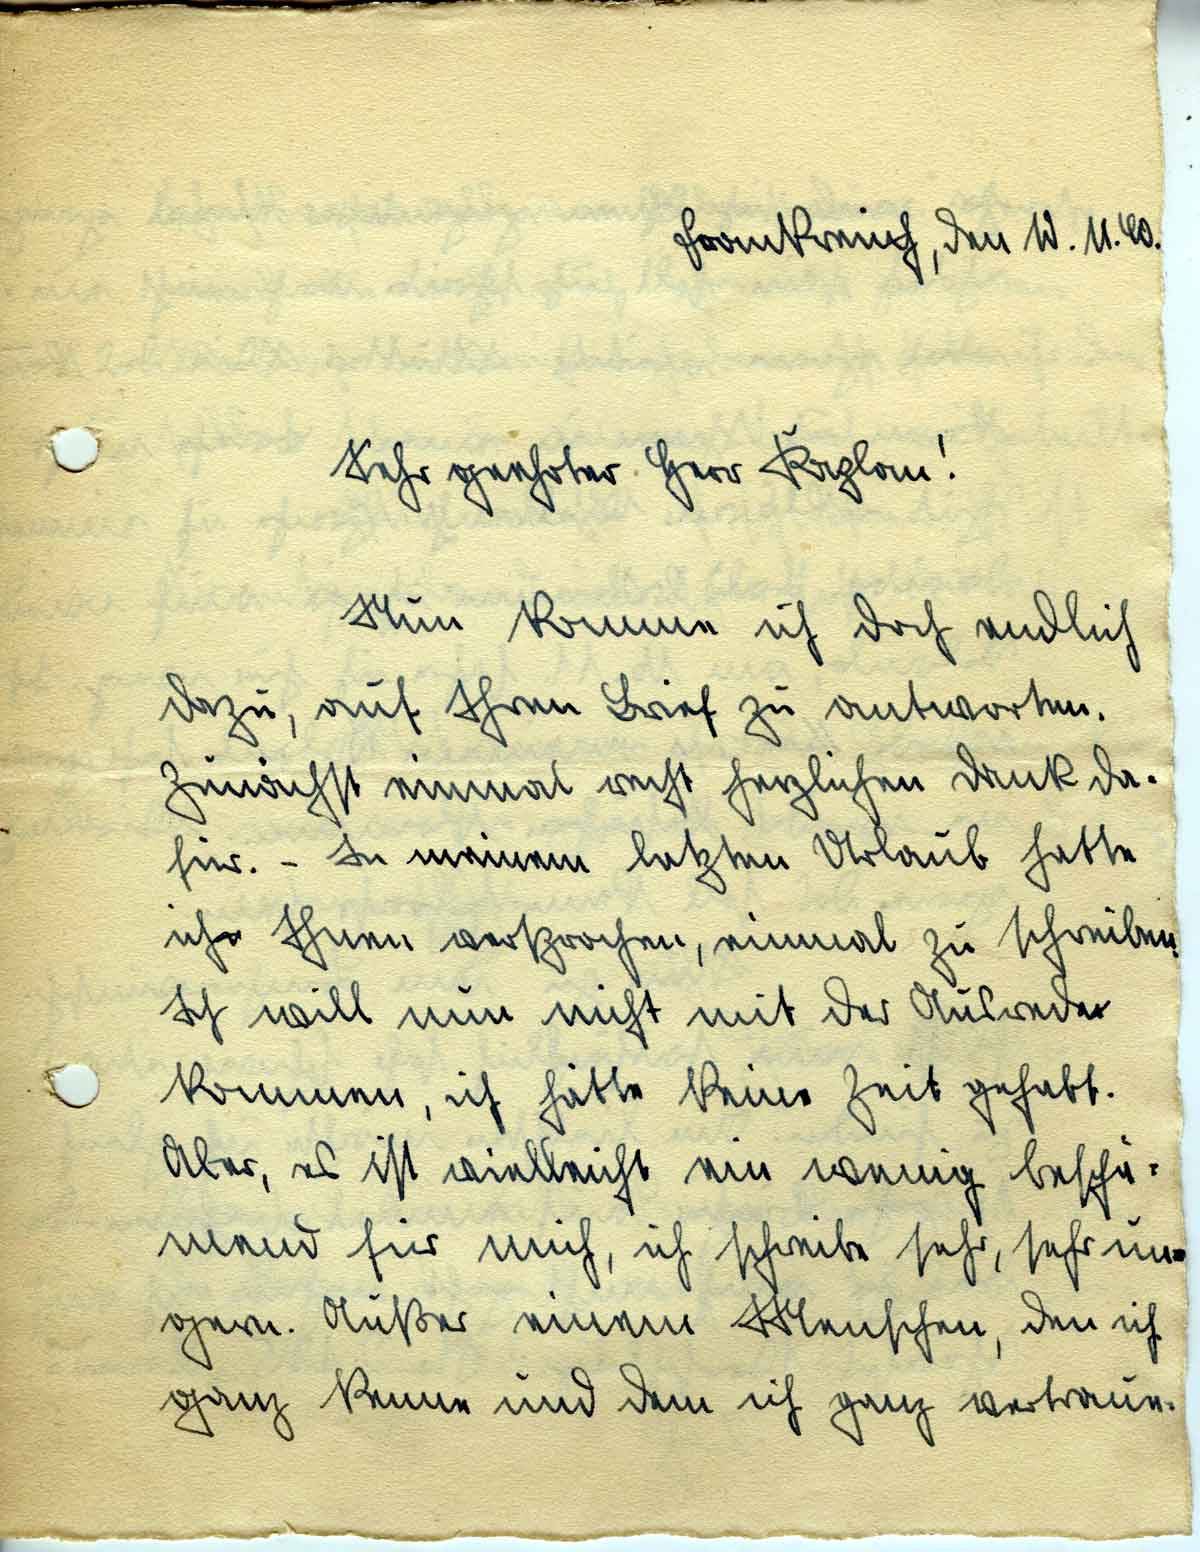 Frankreich, den 12. 11. 40.
Sehr geehrter Herr Kaplan!
Nun komme ich doch endlich
dazu, auf Ihren Brief zu antworten.
Zunächst einmal recht herzlichen Dank da-
für. – In meinem letzten Urlaub hatte
ich Ihnen versprochen, einmal zu schreiben.
Ich will nun nicht mit der Ausrede
kommen, ich hätte keine Zeit gehabt.
Aber, es ist vielleicht ein wenig beschä-
mend für mich, ich schreibe sehr, sehr un-
gern. Außer einem Menschen, den ich
ganz kenne und dem ich ganz vertraue.